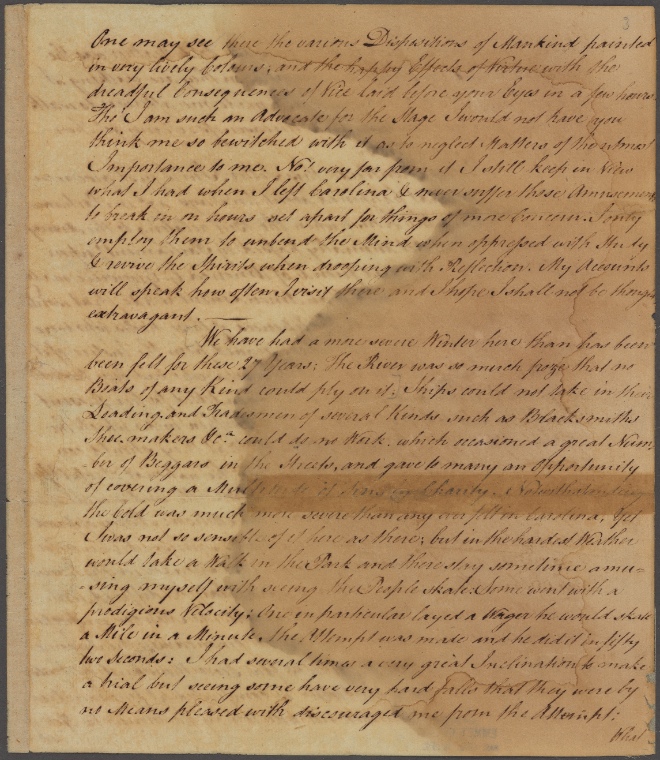 3
One may see there the various Dispositions of Mankind painted
in very lively Colours; and the happy Effects of Virtue with the
dreadful Consequences of Vice laid before your Eyes in a few hours
Tho' I am such an Advocate for the Stage I would not have you
think me so bewitched with it as to neglect Matters of the utmost
Importance to me. No! very far from it I still keep in View
what I had when I left Carolina & never suffer those Amusements
to break in on hours set apart for things of more Concern. I only
employ them to unbend the Mind when oppressed with Study
& revive the Spirits when drooping with Reflection. My Accounts
will speak how often I visit there and I hope I shall not be though
extravagant.
We have had a more severe Winter here than has been
been felt for these 27 Years: The River was so much froze that no
Boats of any Kind could ply on it. Ships could not take in their
Loading and Tradesmen of several Kinds such as Blacksmiths
Shoe-makers &c.a could do no Work: which occasioned a great Num
ber of Beggars in the Streets, and gave to many an Opportunity
of covering a Multitude of Sins by Charity. Notwithstanding
the Cold was much more severe than any ever felt in Carolina; Yet
I was not so sensible of it here as there; but in the hardest Weather
would take a Walk in the Park and there stay sometime amu-
-sing myself with seeing the People skate: Some went with a
prodigious Velocity; One in particular layed a Wager he would skate
a Mile in a Minute, the Attempt was made and he did it in fifty
two Seconds: I had several times a very great Inclination to make
a trial but seeing some have very hard Falls that they were by
no Means pleased with discouraged me from the Attempt:
What